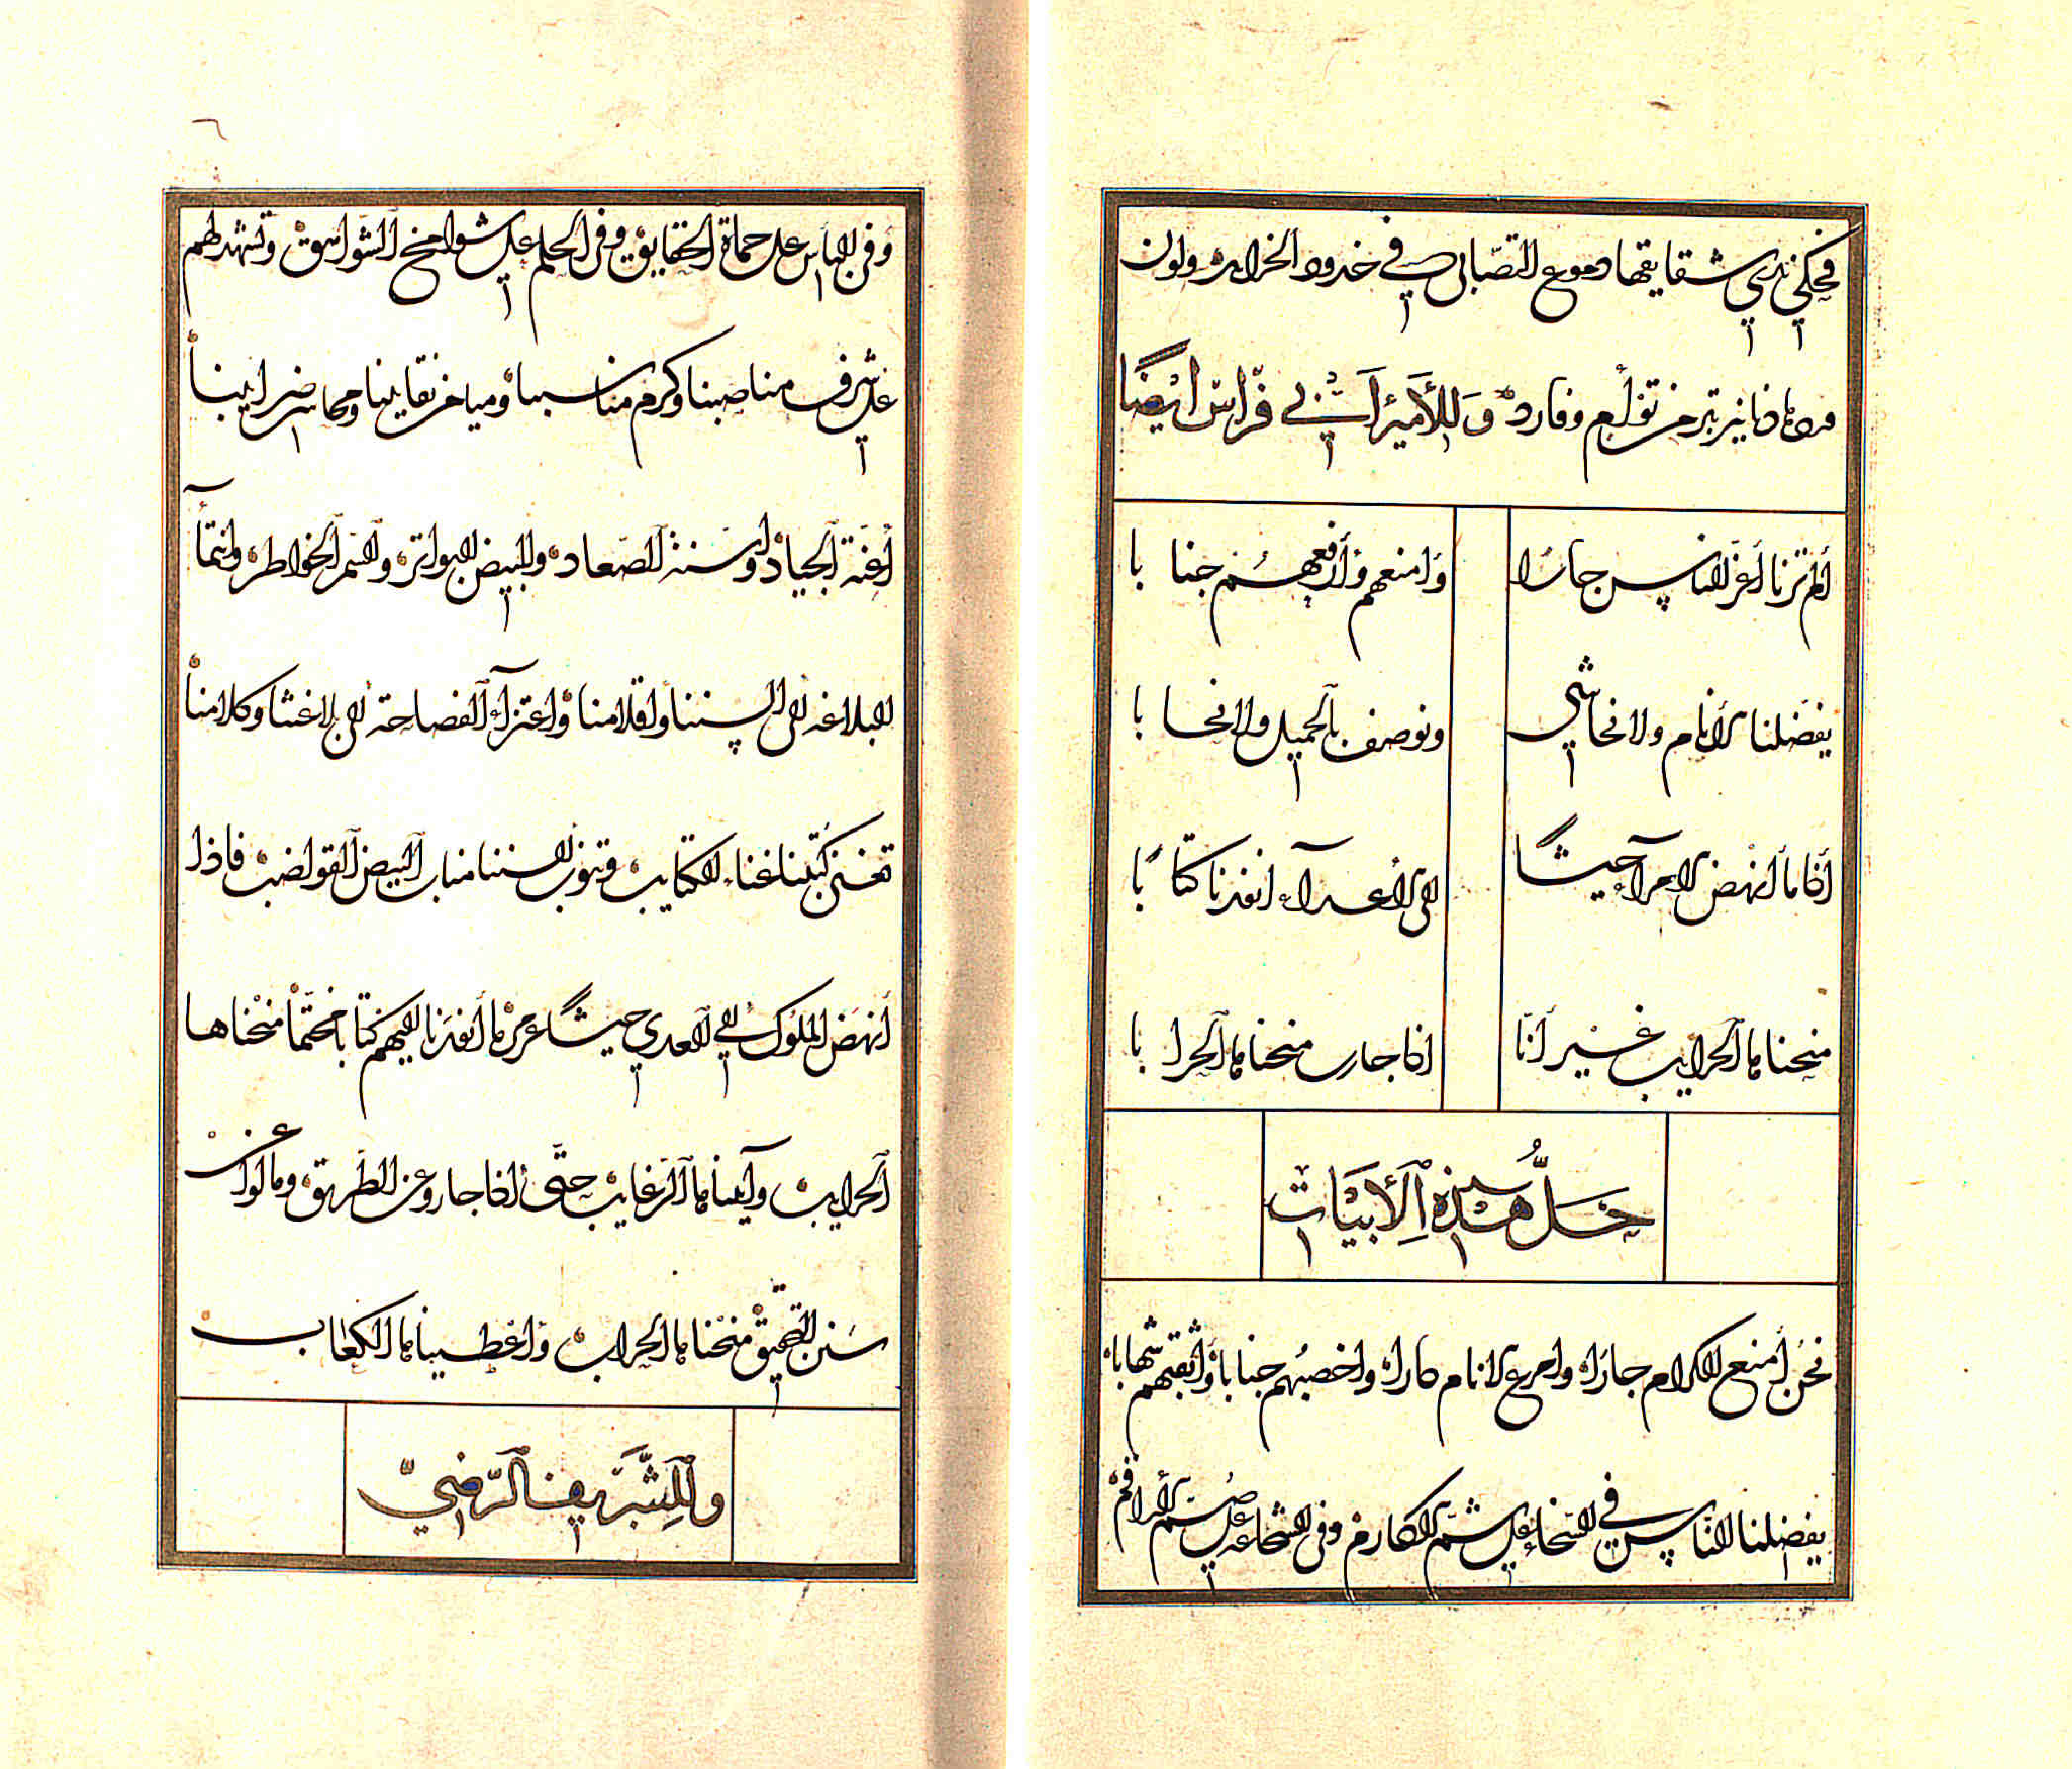 فحكي ندي شقايقها دموع التصابي في خدود الخرايد ولون
دنانير تبر من تؤام وفارد وللأمير أبي فراس ايضا
ألم ترنا أعز الناس جارا وامنعهم وأرفعهم جنابا
يفضلنا الأنام ولا نحاشي ونوصف بالجميل ولا نحابا
اذا ما أنهض الامراء جيشا الى الأعداء انفذنا كتابا
منحنا بالحرايب غير أنا اذا جارت منحنا بالحرابا
حل هذه الأبيات
نحن أمنع الكرام جارا وامرع الانام دارا واخصبهم جنابا وأثقبهم شهابا
يفضلنا الناس في السخاء على شم المكارم وفى الشجاعة على صم
وفى البأس على حماة الحقايق وفى الحلم على شوامخ الشواهق وتشهد لهم
على شرف مناصبنا وكرم مناسبنا وميامن نقايبنا ومحاسن ضرايبنا
أعنة الجياد وأسنة الصعاد والبيض البواتر والسمر الخواطر وانتماء
البلاغة الى السنتنا واقلامنا واعتزاء الفصاحة الى بلاغتنا وكلامنا
تغنى كتبنا غناء الكتايب وتنوب السننا مناب البيض القواضب فاذا
أنهض الملوك الى العدى جيشا عرمرما أنفذنا اليهم كتابا مختما منحناها
الحرايب وآتيناها الرغايب حتى اذا جاروا عن الطريق ومالوا عن
سنن التحقيق منحناها الحراب وأعطيناها الكعاب
وللشريف الرضي
٦